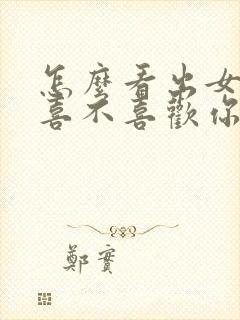 怎麼看出女
喜不喜歡你
鄭實